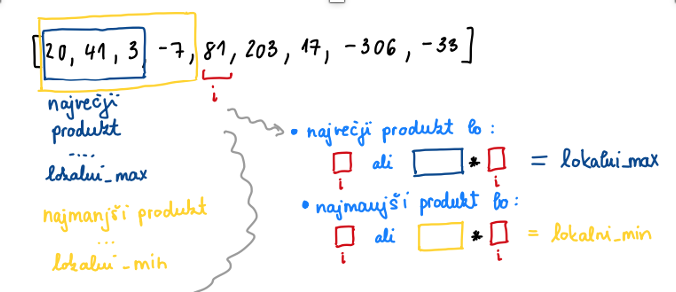 [20, 41, 3, -7, 81, 203, 17, -306, -33]
i
največji
produkt
....
lokalni_max
najmanjši produkt
...
lokalni_min
• največji produkt bo :
ali * = lokalni_max
i i
• najmanjši produkt bo :
ali * = lokalni_min
i i